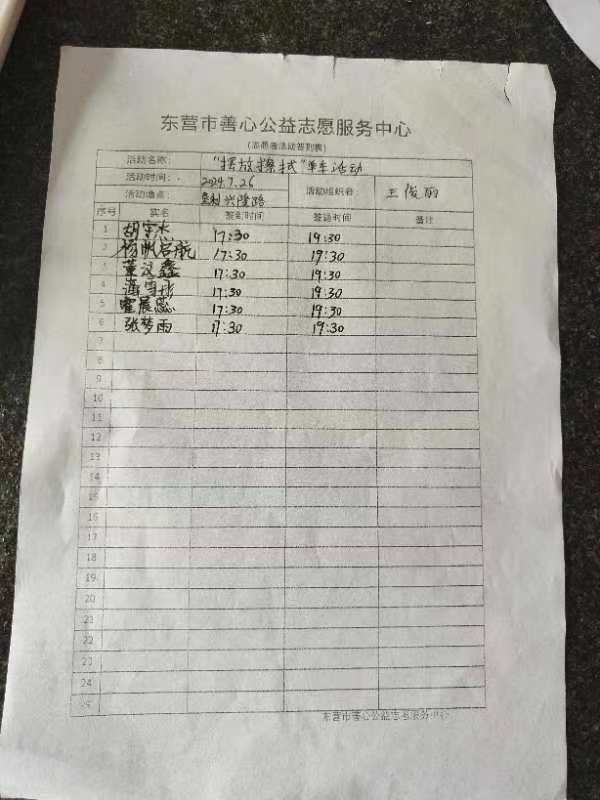 东营市善心公益志愿服务中心
（志愿者活动签到表）
活动名称： "摆放擦拭"单车活动
活动时间： 2024.7.26
活动地点： 垦利兴隆路 活动组织者： 王俊丽
序号 实名 签到时间 签退时间 备注
1 胡宇杰 17:30 19:30
2 杨帆启航 17:30 19:30
3 董汶鑫 17:30 19:30
4 17:30 19:30
5 霍晨蕊 17:30 19:30
6 张梦雨 17:30 19:30
7
8
9
10
11
12
13
14
15
16
17
18
19
20
21
22
23
24
25
东营市善心公益志愿服务中心